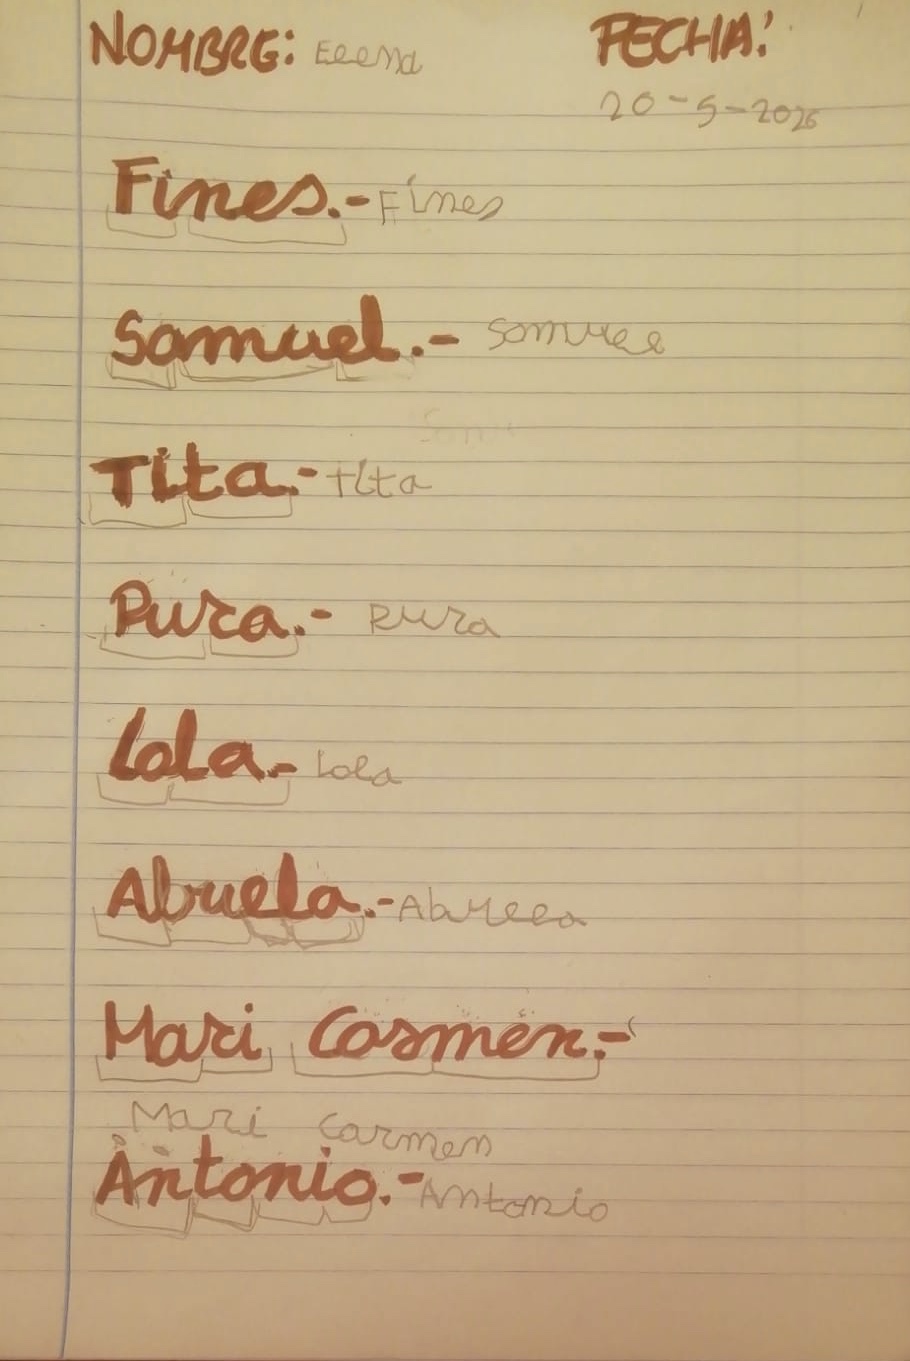 NOMBRE: Elena FECHA:
20-5-2026
Fines.- Fines
Samuel.- Samuel
Tita.- tita
Pura.- Pura
Lola.- Lola
Abuela.- Abuela
Mari Carmen.-
Mari Carmen
Antonio.- Antonio